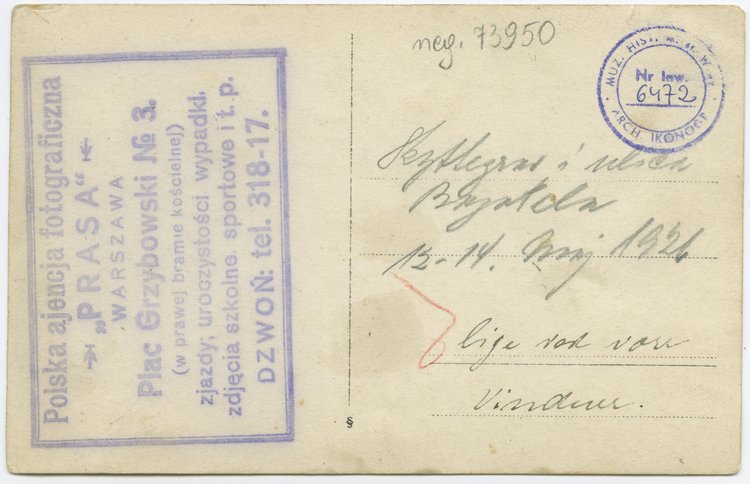 Polska ajencja fotograficzna
„PRASA”
WARSZAWA
Plac Grzybowski № 3.
(w prawej bramie kościelnej)
zjazdy, uroczystości wypadki,
zdjęcia szkolne, sportowe i t. p.
DZWOŃ: tel. 318-17.
neg. 73950
MUZ. HIST.
Nr Inw.
6472
ARCH. IKONOGR.
i ulica
Bagatela
12-14. Maj 1926
§